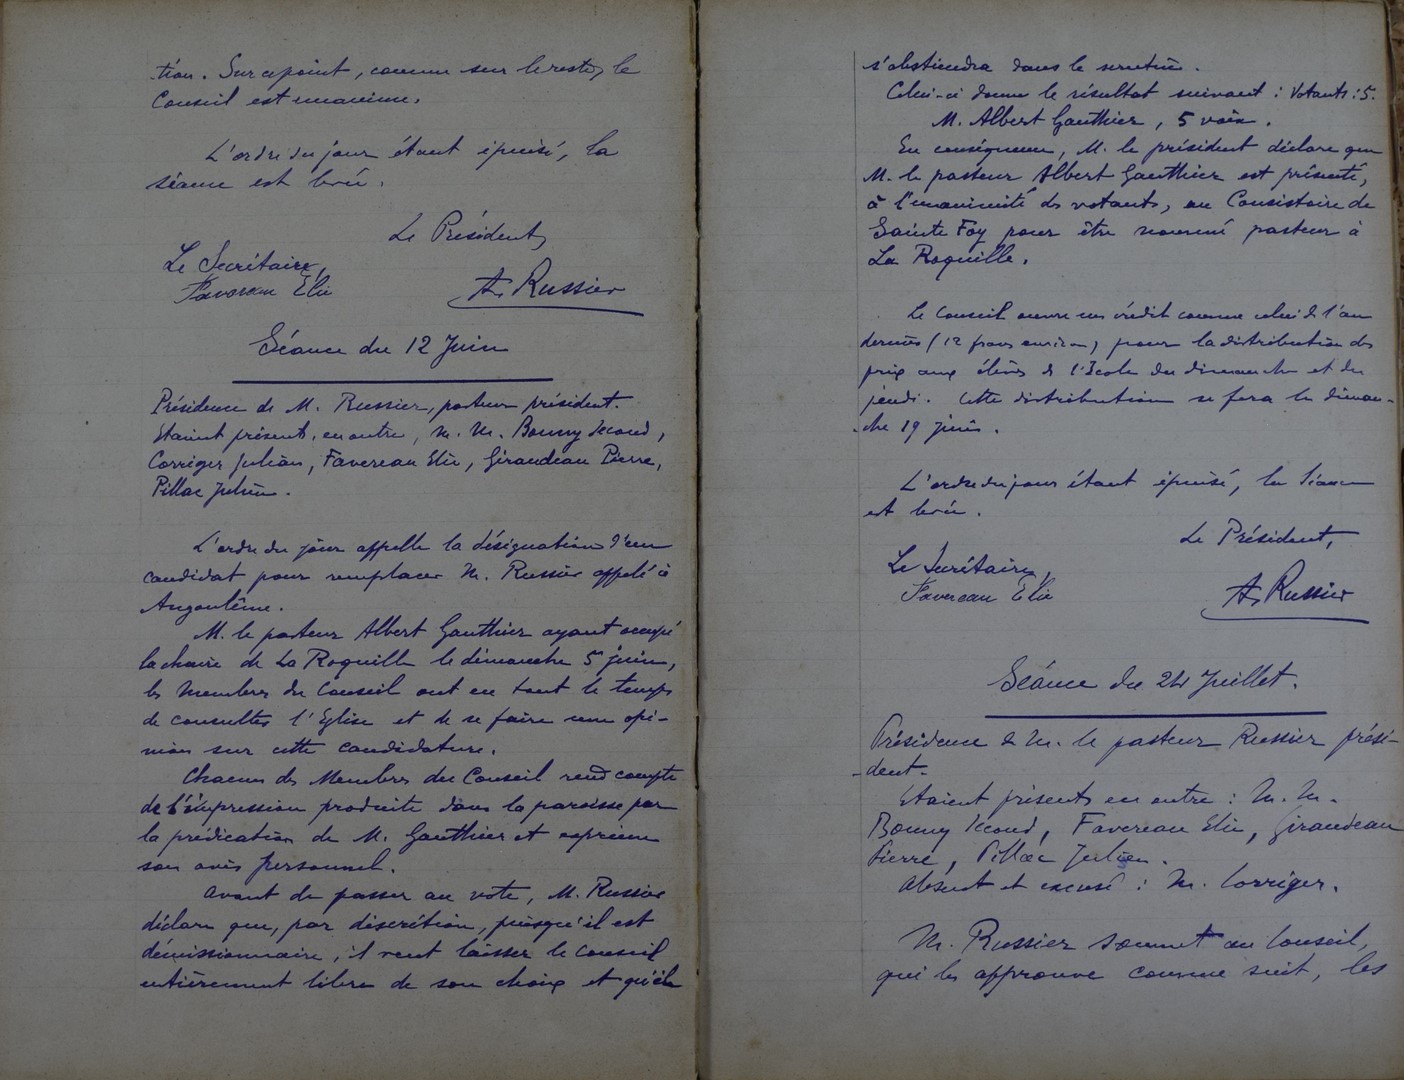 tion. Sur ce point, comme sur le reste, le
Conseil est unanime.
L'ordre du jour étant épuisé, la
séance est levée.
Le Président,
Le Secrétaire,
Favereau Elie
A. Russier
Séance du 12 Juin
Présidence de M. Russier, pasteur président.
Etaient présents, en outre, M. M. Bonny Second,
Corriger Julien, Favereau Elie, Girandeau Pierre,
Pillac Julien.
L'ordre du jour appelle la désignation d'un
candidat pour remplacer M. Russier appelé à
Angoulême.
M. le pasteur Albert Gauthier ayant occupé
la chaire de La Roquille le dimanche 5 juin,
les Membres du Conseil ont eu tout le temps
de consulter l'Eglise et de se faire une opi-
nion sur cette candidature.
Chacun des Membres du Conseil rend compte
de l'impression produite dans la paroisse par
la prédication de M. Gauthier et exprime
son avis personnel.
Avant de passer au vote, M. Russier
déclare que, par discrétion, puisqu'il est
démissionnaire, il veut laisser le Conseil
entièrement libre de son choix et qu'il
s'abstiendra dans le scrutin.
Celui-ci donne le résultat suivant : Votants : 5.
M. Albert Gauthier, 5 voix.
En conséquence, M. le président déclare que
M. le pasteur Albert Gauthier est présenté,
à l'unanimité des votants, au Consistoire de
Sainte Foy pour être nommé pasteur à
La Roquille.
Le Conseil ouvre un crédit comme celui de l'an
dernier (12 francs environ) pour la distribution des
prix aux élèves de l'Ecole du dimanche et du
jeudi. Cette distribution se fera le diman-
-che 19 juin.
L'ordre du jour étant épuisé, la séance
est levée.
Le Président,
Le Secrétaire,
Favereau Elie
A. Russier
Séance du 24 Juillet.
Présidence de M. le pasteur Russier prési-
-dent.
Etaient présents en outre : M. M.
Bonny Second, Favereau Elie, Girandeau
Pierre, Pillac Julien.
Absent et excusé : M. Corriger.
M. Russier soumet au Conseil,
qui les approuve comme suit, les